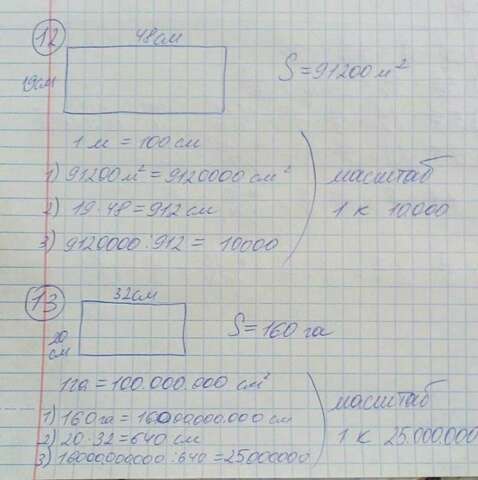 12
48см
19см
S = 91200 м²
1 м = 100 см
1) 91200 м² = 9120000 см²
2) 19 · 48 = 912 см
3) 9120000 : 912 = 10000
масштаб
1 к 10.000
13
32см
20 см
S = 160 га
1га = 100.000.000 см²
1) 160 га = 16000.000.000 см
2) 20 · 32 = 640 см
3) 16000.000000 : 640 = 25000000
масштаб
1 к 25.000.000